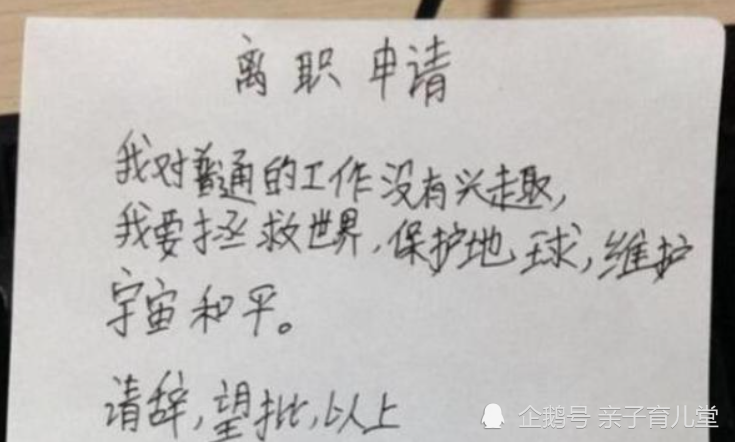 离职申请
我对普通的工作没有兴趣,
我要拯救世界,保护地球,维护
宇宙和平。
请辞,望批,以上
企鹅号 亲子育儿堂